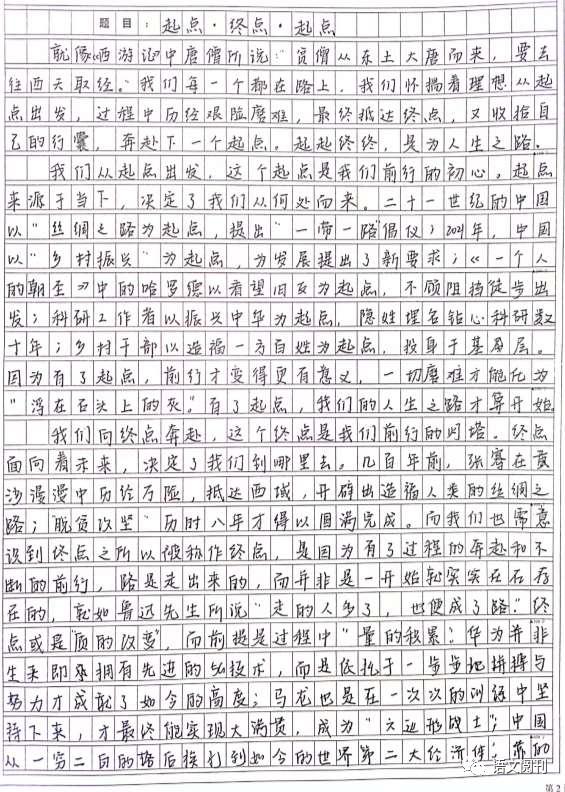 题目：起点·终点·起点
就像《西游记》中唐僧所说"贫僧从东土大唐而来，要去
往西天取经。"我们每一个都在路上，我们怀揣着理想从起
点出发，过程中历经艰险磨难，最终抵达终点，又收拾自
己的行囊，奔赴下一个起点。起起终终，是为人生之路。
我们从起点出发，这个起点是我们前行的初心。起点
来源于当下，决定了我们从何处而来。二十一世纪的中国
以"丝绸之路为起点，提出"一带一路"倡仪；2021年，中国
以"乡村振兴"为起点，为发展提出了新要求；《一个人
的朝圣》中的哈罗德以看望旧友为起点，不顾阻挡徒步出
发；科研工作者以振兴中华为起点，隐姓埋名钻心科研数
十年；乡村干部以造福一方百姓为起点，投身于基层。
因为有了起点，前行才变得更有意义，一切磨难才能化为
"浮在石头上的死"。有了起点，我们的人生之路才算开始。
我们向终点奔赴，这个终点是我们前行的灯塔。终点
面向着未来，决定了我们到哪里去。几百年前，张骞在黄
沙漫漫中历经万险，抵达西域，开辟出造福人类的丝绸之
路；"脱贫攻坚"历时八年才得以圆满完成。而我们也需意
识到终点之所以被称作终点，是因为有了过程的奔赴和不
断的前行，路是走出来的，而并非是一开始就实实在在存
在的，就如鲁迅先生所说"走的人多了，也便成了路。"终
点或是"质的改变"，而前提是过程中"量的积累"。华为并非
生来即承拥有先进的5G技术，而是依托于一步步地拼搏与
努力才成就了如今的高度；马龙也是在一次次的训练中坚
持下来，才最终能实现大满贯，成为"六边形战士"；中国
从一穷二白的落后挨打到如今的世界第二大经济体，靠的
语文阅刊
第2